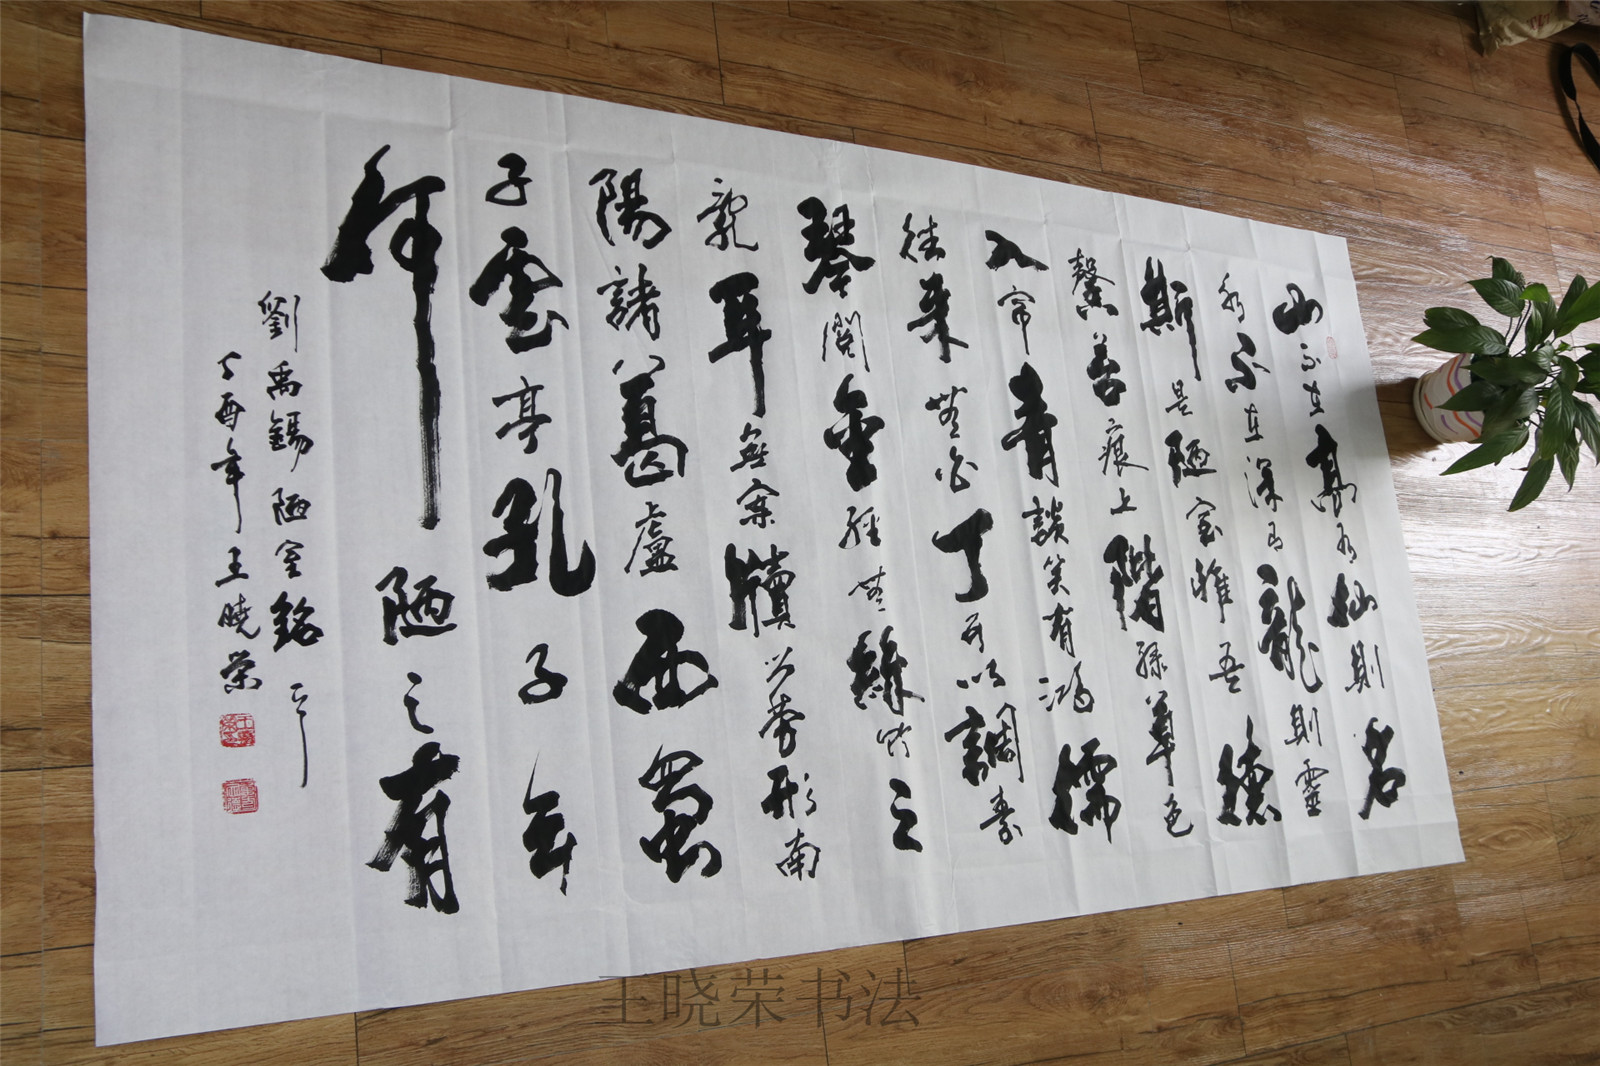 山不在高有仙則名
水不在深有龍則靈
斯是陋室惟吾德
馨苔痕上階綠草色
入帘青談笑有鴻儒
往來無白丁可以調素
琴閱金經無絲竹之
亂耳無案牘之勞形南
陽諸葛廬西蜀
子雲亭孔子云
何陋之有
劉禹錫陋室銘
丁酉年王曉榮
王晓荣书法